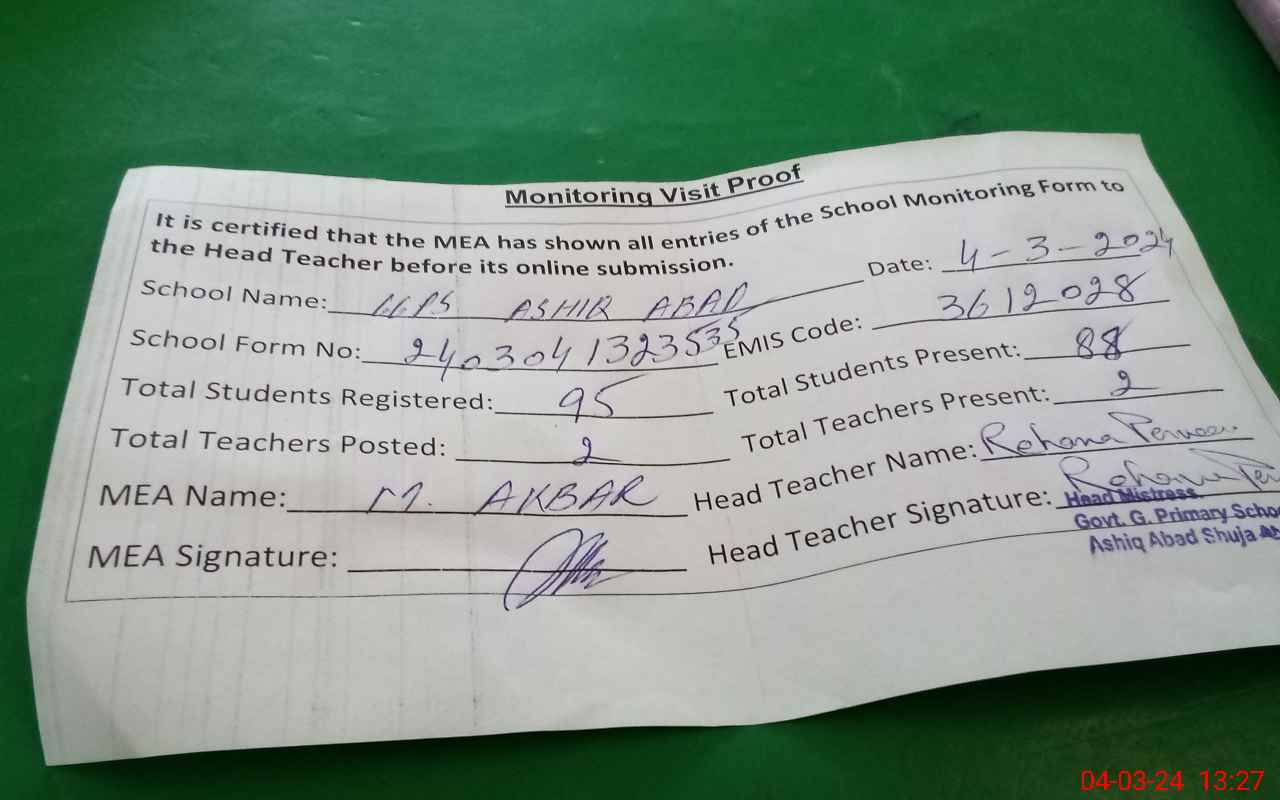 Monitoring Visit Proof
It is certified that the MEA has shown all entries of the School Monitoring Form to
the Head Teacher before its online submission.
Date: 4-3-2024
School Name: GGPS ASHIQ ABAD
EMIS Code: 3612028
School Form No: 2403041323535
Total Students Present: 88
Total Students Registered: 95
Total Teachers Present: 2
Total Teachers Posted: 2
Head Teacher Name: Rehana Perveen
MEA Name: M. AKBAR
Head Teacher Signature: Rehana
MEA Signature:
Head Mistress
Govt. G. Primary Schoo
Ashiq Abad Shuja
04-03-24 13:27